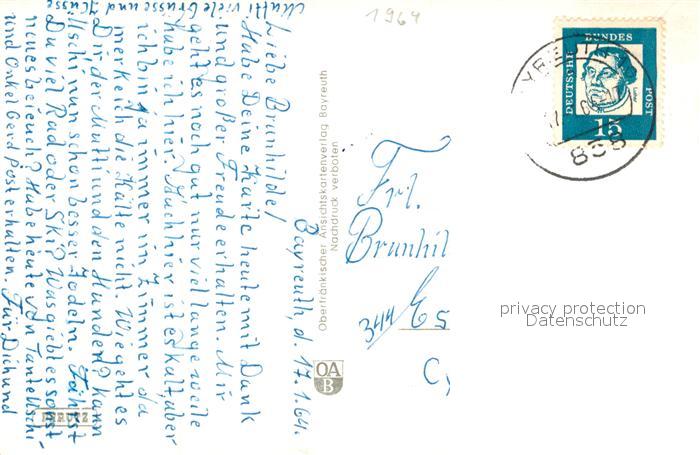 Bayreuth, d. 17.1.64.
Liebe Brunhilde!
Habe Deine Karte heute mit Dank
und großer Freude erhalten. Mir
geht es noch gut, nur viel lange weile
habe ich hier. Auch hier ist es kalt, aber
ich bin ja immer im Zimmer da
merke ich die Kälte nicht. Wie geht es
Dir, der Mutti und den Hunden? kann
Uschi nun schon besser Jodeln. Fährst
Du viel Rad oder Ski? Was giebt es sonst
neues bei euch? Habe heute von Tante Uschi
und Onkel Gerd Post erhalten. Für Dich und
Mutti viele Grüsse und Küsse
PERUTZ
Oberfränkischer Ansichtskartenverlag Bayreuth
Nachdruck verboten
OA
B
1964
DEUTSCHE BUNDES POST
15
858
Frl.
Brunhil
344 Es
privacy protection
Datenschutz